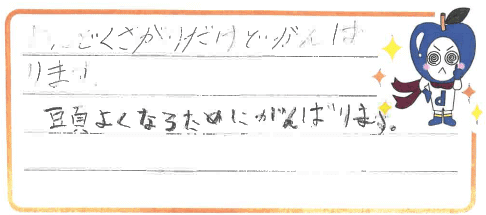 めんどくさがりだけどがんば
ります。
頭よくなるためにがんばります。
d